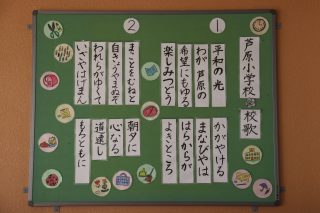 芦原小学校 校歌
1
平和の光 かがやける
わが芦原の まなびやは
希望にもゆる はらからが
楽しみつどう よきところ
2
まことをむねと 朝夕に
自きょうやまぬ 心なる
われらがゆくて 道遠し
いざやはげまん もろともに